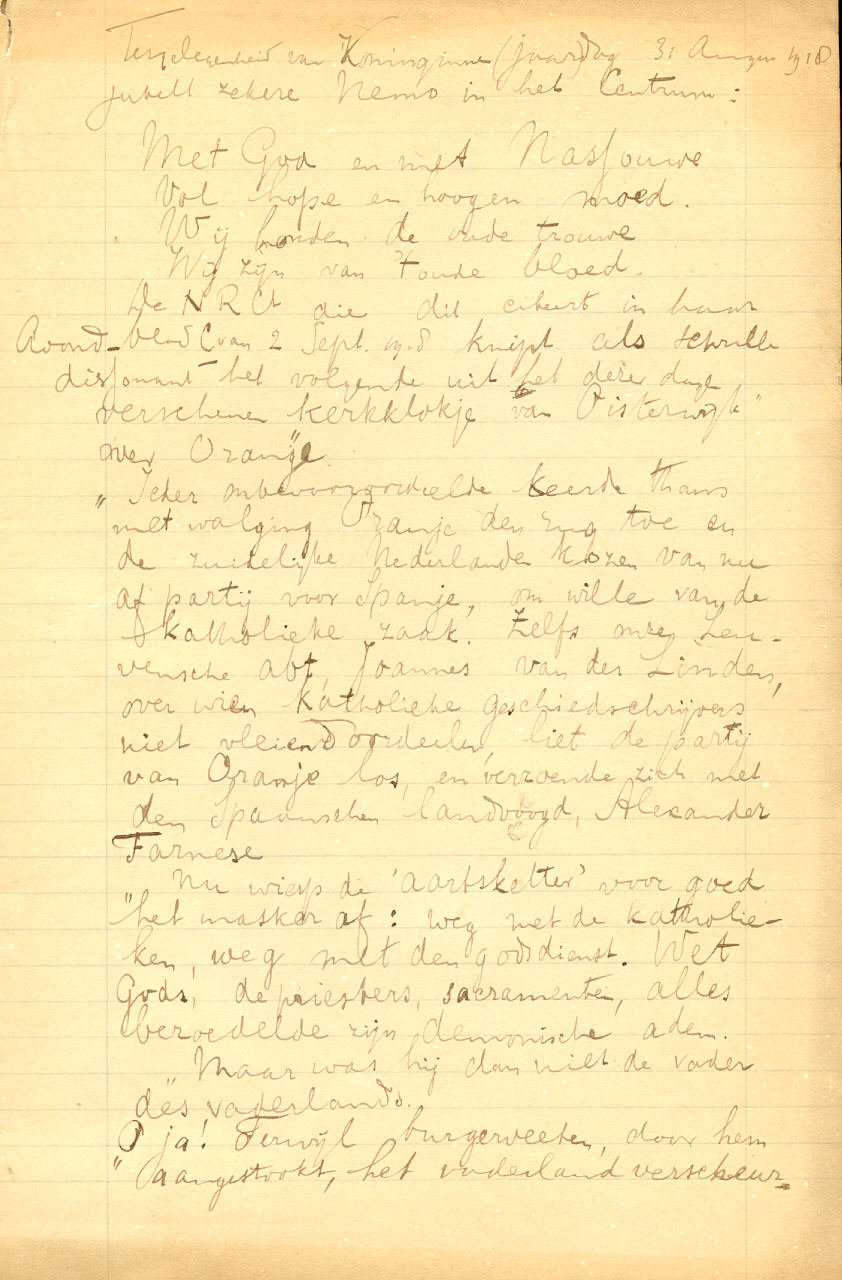 Ter gelegenheid van Koninginne(jaar)dag 31 Augus 1918
jubelt zekere Nemo in het Centrum:
Met God en met Nassouwe
Vol hope en hoogen moed.
Wij houden de oude trouwe
Wij zijn van 't oude bloed.
De NRCt die dit citeert in haar
Avond-blad C van 2 Sept. knipt als schrille
dissonant het volgende uit het dezer dage
verschenen kerkklokje van Oisterwijk"
over Oranje.
„Ieder onbevooroordeelde keerde thans
met walging Oranje den rug toe en
de zuidelijke Nederlanden kozen van nu
af partij voor Spanje, om wille van de
katholieke zaak. Zelfs onze Leu-
vensche abt, Joannes van der Linden,
over wien katholieke geschiedschrijvers
niet vleiend oordeelen, liet de partij
van Oranje los, en verzoende zich met
den Spaanschen landvoogd, Alexander
Farnese
Nu wierp de 'aartsketter' voor goed
"het masker af: weg met de katholie-
ken, weg met den godsdienst. Wet
Gods, de priesters, sacramenten, alles
bezoedelde zijn demonische adem.
" Maar was hij dan niet de vader
des vaderlands.
O ja! Terwijl burgerveeten, door hem
" aangestookt, het vaderland verscheur-